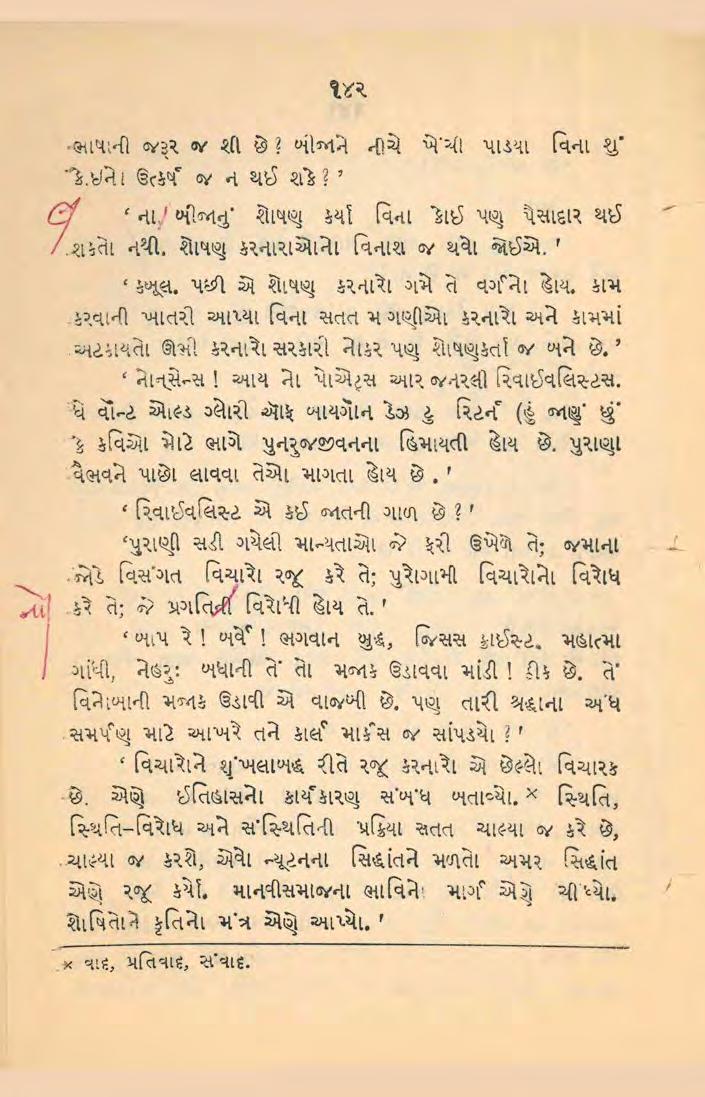 ૧૪૨
ભાષાની જરૂર જ શી છે? બીજાને નીચે ખેંચી પાડયા વિના શું
કેાઈનેા ઉત્કર્ષ જ ન થઈ શકે?’
‘ ના, બીજાનું શેાષણ કર્યા વિના કેાઈ પણ પૈસાદાર થઈ
શકતેા નથી. શેાષણ કરનારાઓનેા વિનાશ જ થવેા જોઈએ. ’
‘ કબૂલ. પછી એ શેાષણ કરનારેા ગમે તે વર્ગનેા હેાય. કામ
કરવાની ખાતરી આપ્યા વિના સતત મ ગણીઓ કરનારેા અને કામમાં
અટકાયતેા ઊભી કરનારેા સરકારી નેાકર પણ શેાષણકર્તા જ બને છે.’
‘ નેાનસેન્સ ! આય નેા પેાએટ્સ આર જનરલી રિવાઈવલિસ્ટસ.
ધે વૉન્ટ ઓલ્ડ ગ્લેારી ઑફ બાયગૉન ડેઝ ટુ રિટર્ન (હું જાણું છું
કે કવિઓ મેાટે ભાગે પુનરુજજીવનના હિમાયતી હેાય છે. પુરાણા
વૈભવને પાછેા લાવવા તેઓ માગતા હેાય છે . ’
‘ રિવાઈવલિસ્ટ એ કઈ જાતની ગાળ છે ? ’
‘પુરાણી સડી ગયેલી માન્યતાઓ જે ફરી ઉખેળે તે; જમાના
જોડે વિસંગત વિચારેા રજૂ કરે તે; પુરેાગામી વિચારેાનેા વિરેાધ
નેા
કરે તે; જે પ્રગતિની વિરેાધી હેાય તે. ’
‘ બાપ રે ! બર્વે ! ભગવાન બુદ્ધ, જિસસ ક્રાઈસ્ટ. મહાત્મા
ગાંધી, નેહરુ: બધાની તેં તેા મજાક ઉડાવવા માંડી ! ઠીક છે. તેં
વિનેાબાની મજાક ઉડાવી એ વાજબી છે. પણ તારી શ્રદ્ધાના અંધ
સમર્પણ માટે આખરે તને કાર્લ માર્કસ જ સાંપડયેા ? ’
‘ વિચારેાને શૃંખલાબદ્ધ રીતે રજૂ કરનારેા એ છેલ્લેા વિચારક
છે. એણે ઈતિહાસનેા કાર્યકારણ સંબંધ બતાવ્યેા. × સ્થિતિ,
સ્થિતિ–વિરેાધ અને સંસ્થિતિની પ્રક્રિયા સતત ચાલ્યા જ કરે છે,
ચાલ્યા જ કરશે, એવેા ન્યૂટનના સિદ્ધાંતને મળતેા અમર સિદ્ધાંત
એણે રજૂ કર્યેા. માનવીસમાજના ભાવિનેા માર્ગ એણે ચીંધ્યેા.
શેાષિતેાને કૃતિનેા મંત્ર એણે આપ્યેા. ’
× વાદ, પ્રતિવાદ, સંવાદ.